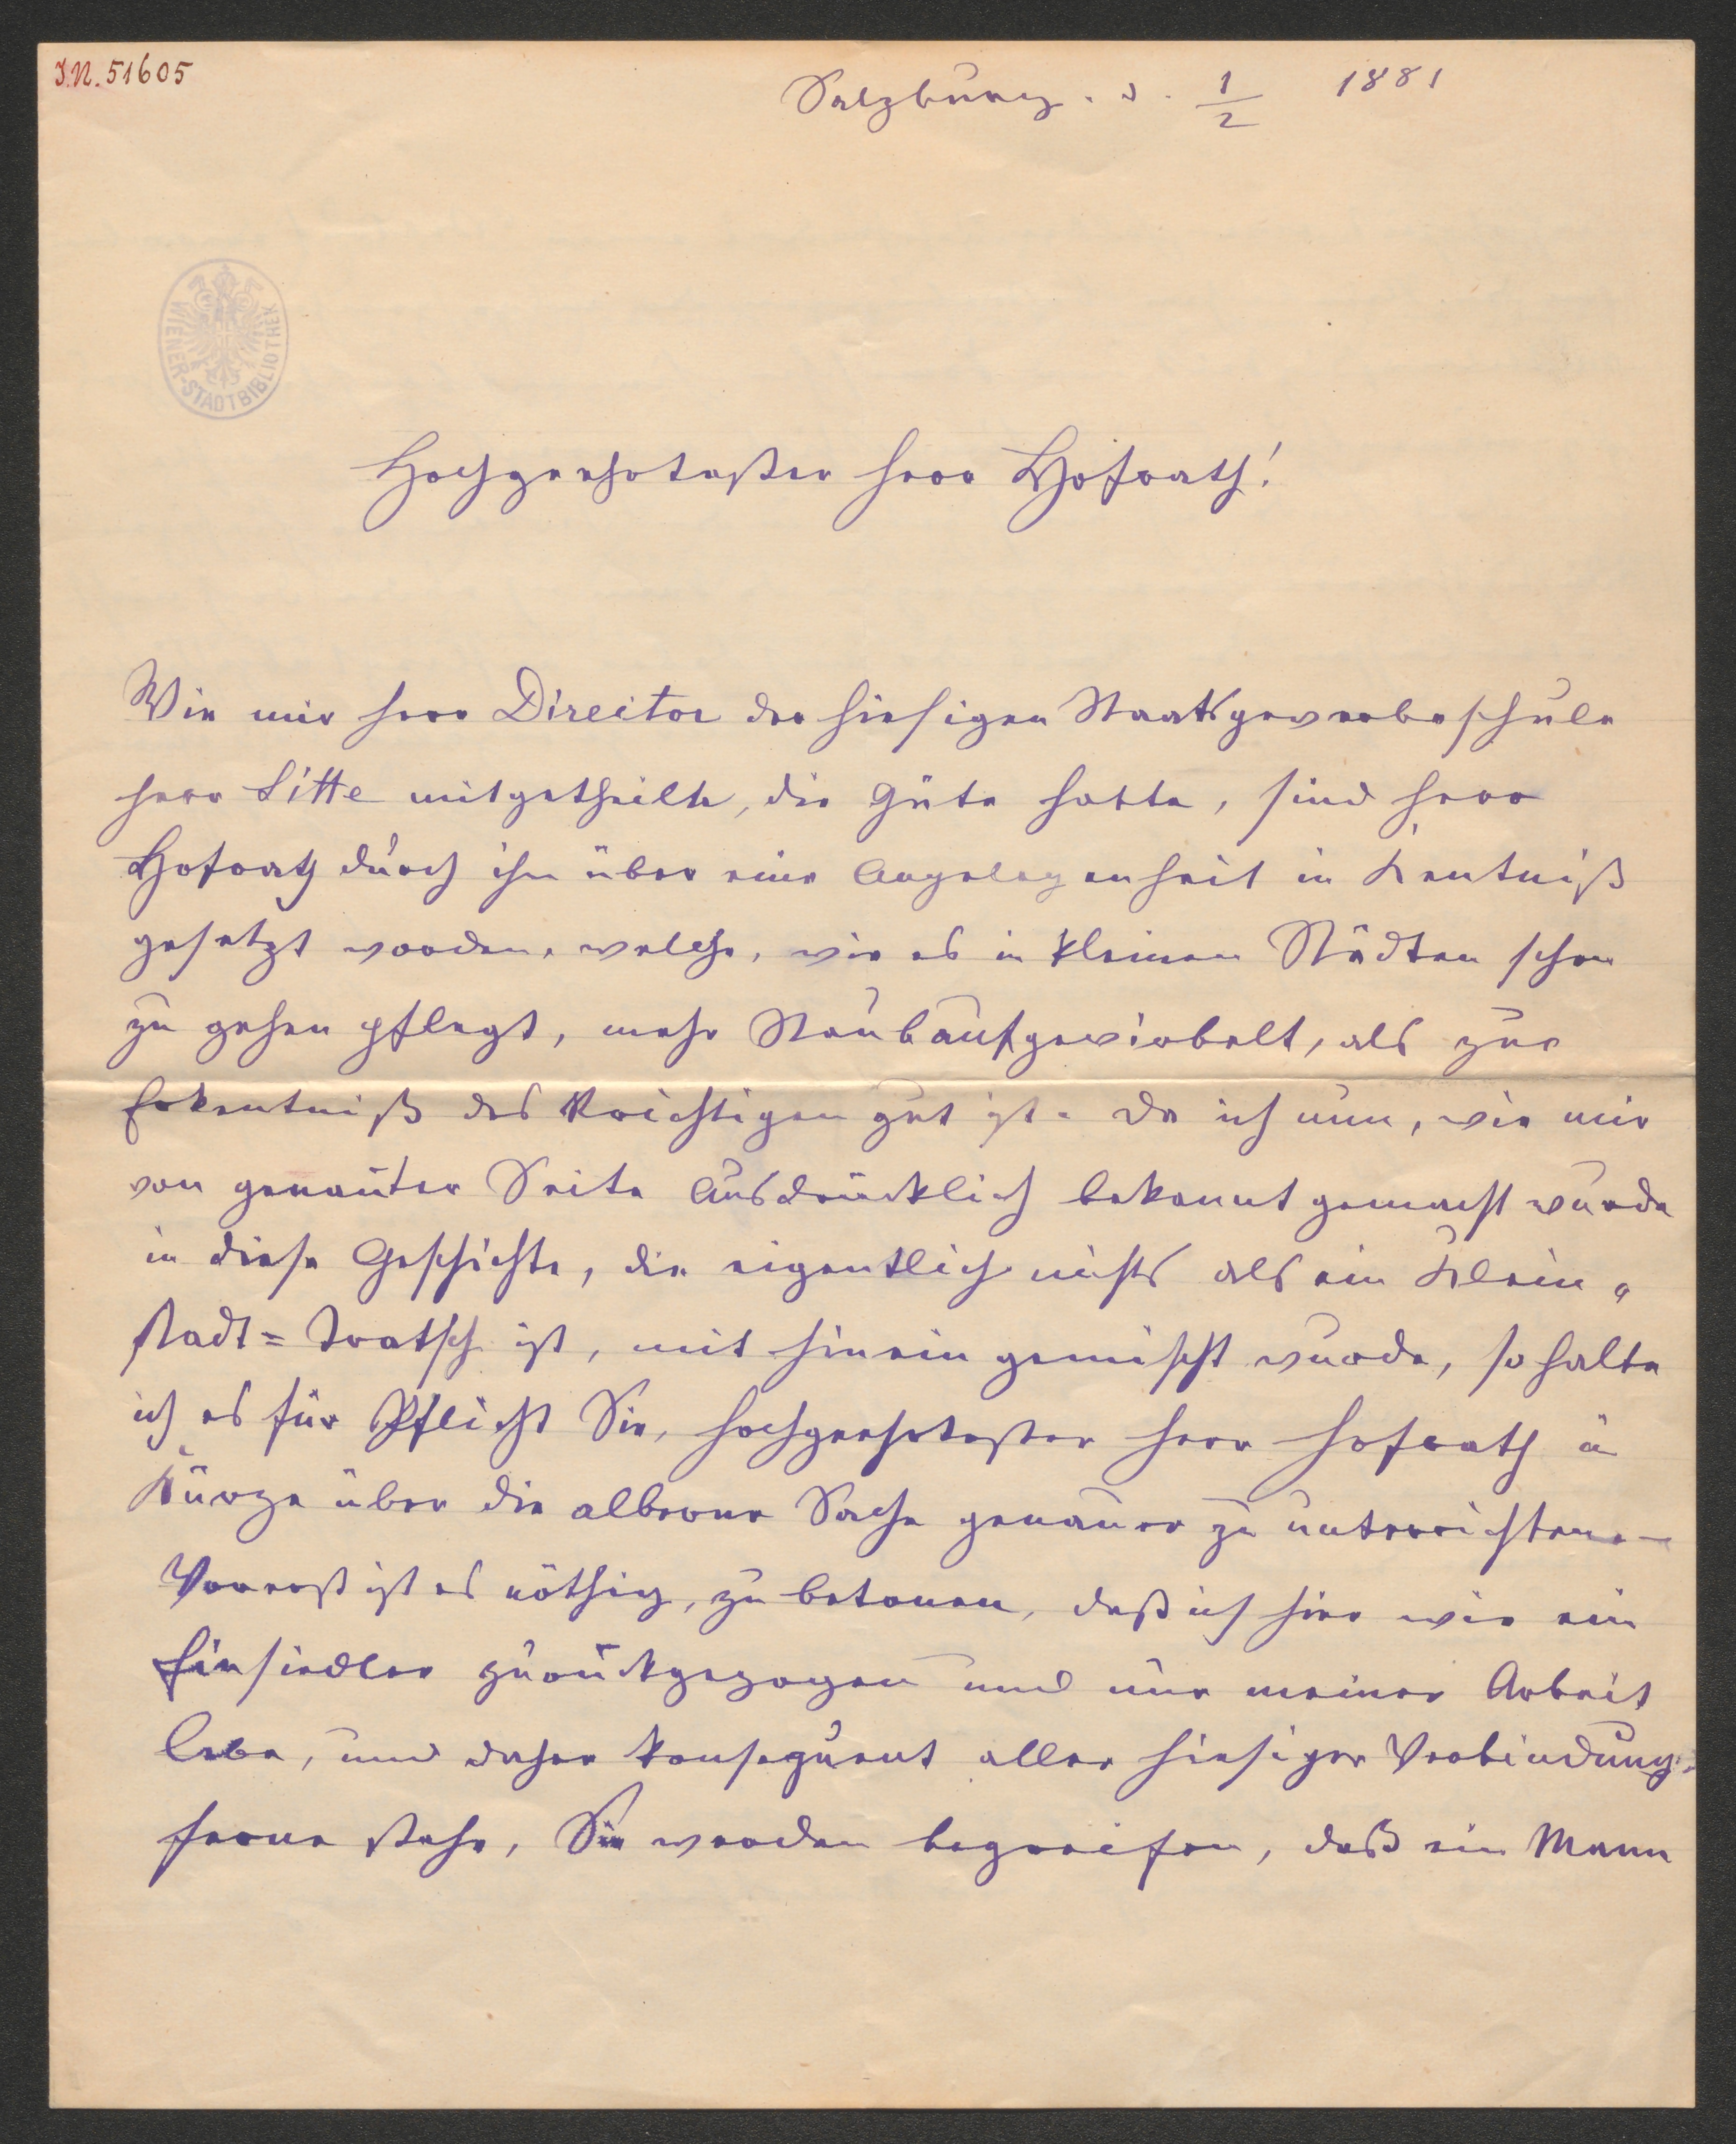 J.N. 51605
Salzburg. d. 1/2 1881
WIENER-STADTBIBLIOTHEK
Hochgeehrtester Herr Hofrath!
Wie mir Herr Director der hiesigen Staatsgewerbeschule
Herr Sitte mitgetheilt, die Güte hatte, sind Herr
Hofrath durch ihn über eine Angelegenheit in Kentniß
gesetzt worden, welche, wie es in kleinen Städten schon
zu gehen pflegt, mehr Staub aufgewirbelt, als zur
Erkentniß des Richtigen gut ist. Da ich nun, wie mir
von genanter Seite ausdrücklich bekannt gemacht wurde
in diese Geschichte, die eigentlich nichts als ein Klein„
stadt=Tratsch ist, mit hinein gemischt wurde, so halte
ich es für Pflicht Sie, hochgeehrtester Herr Hofrath in
Kürze über die alberne Sache genauer zu unterrichten. –
Vorerst ist es nöthig, zu betonen, daß ich hier wie ein
Einsiedler zurückgezogen und nur meiner Arbeit
lebe, und daher konsequent aller hiesiger Verbindung
ferne stehe, Sie werden begreifen, daß ein Mann